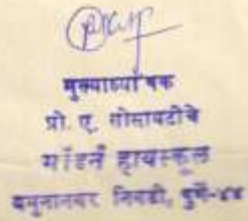 मुख्याध्यापक
प्रो. ए. सोसायटीचे
मॉडर्न हायस्कूल
यमुनानगर निगडी, पुणे-४४